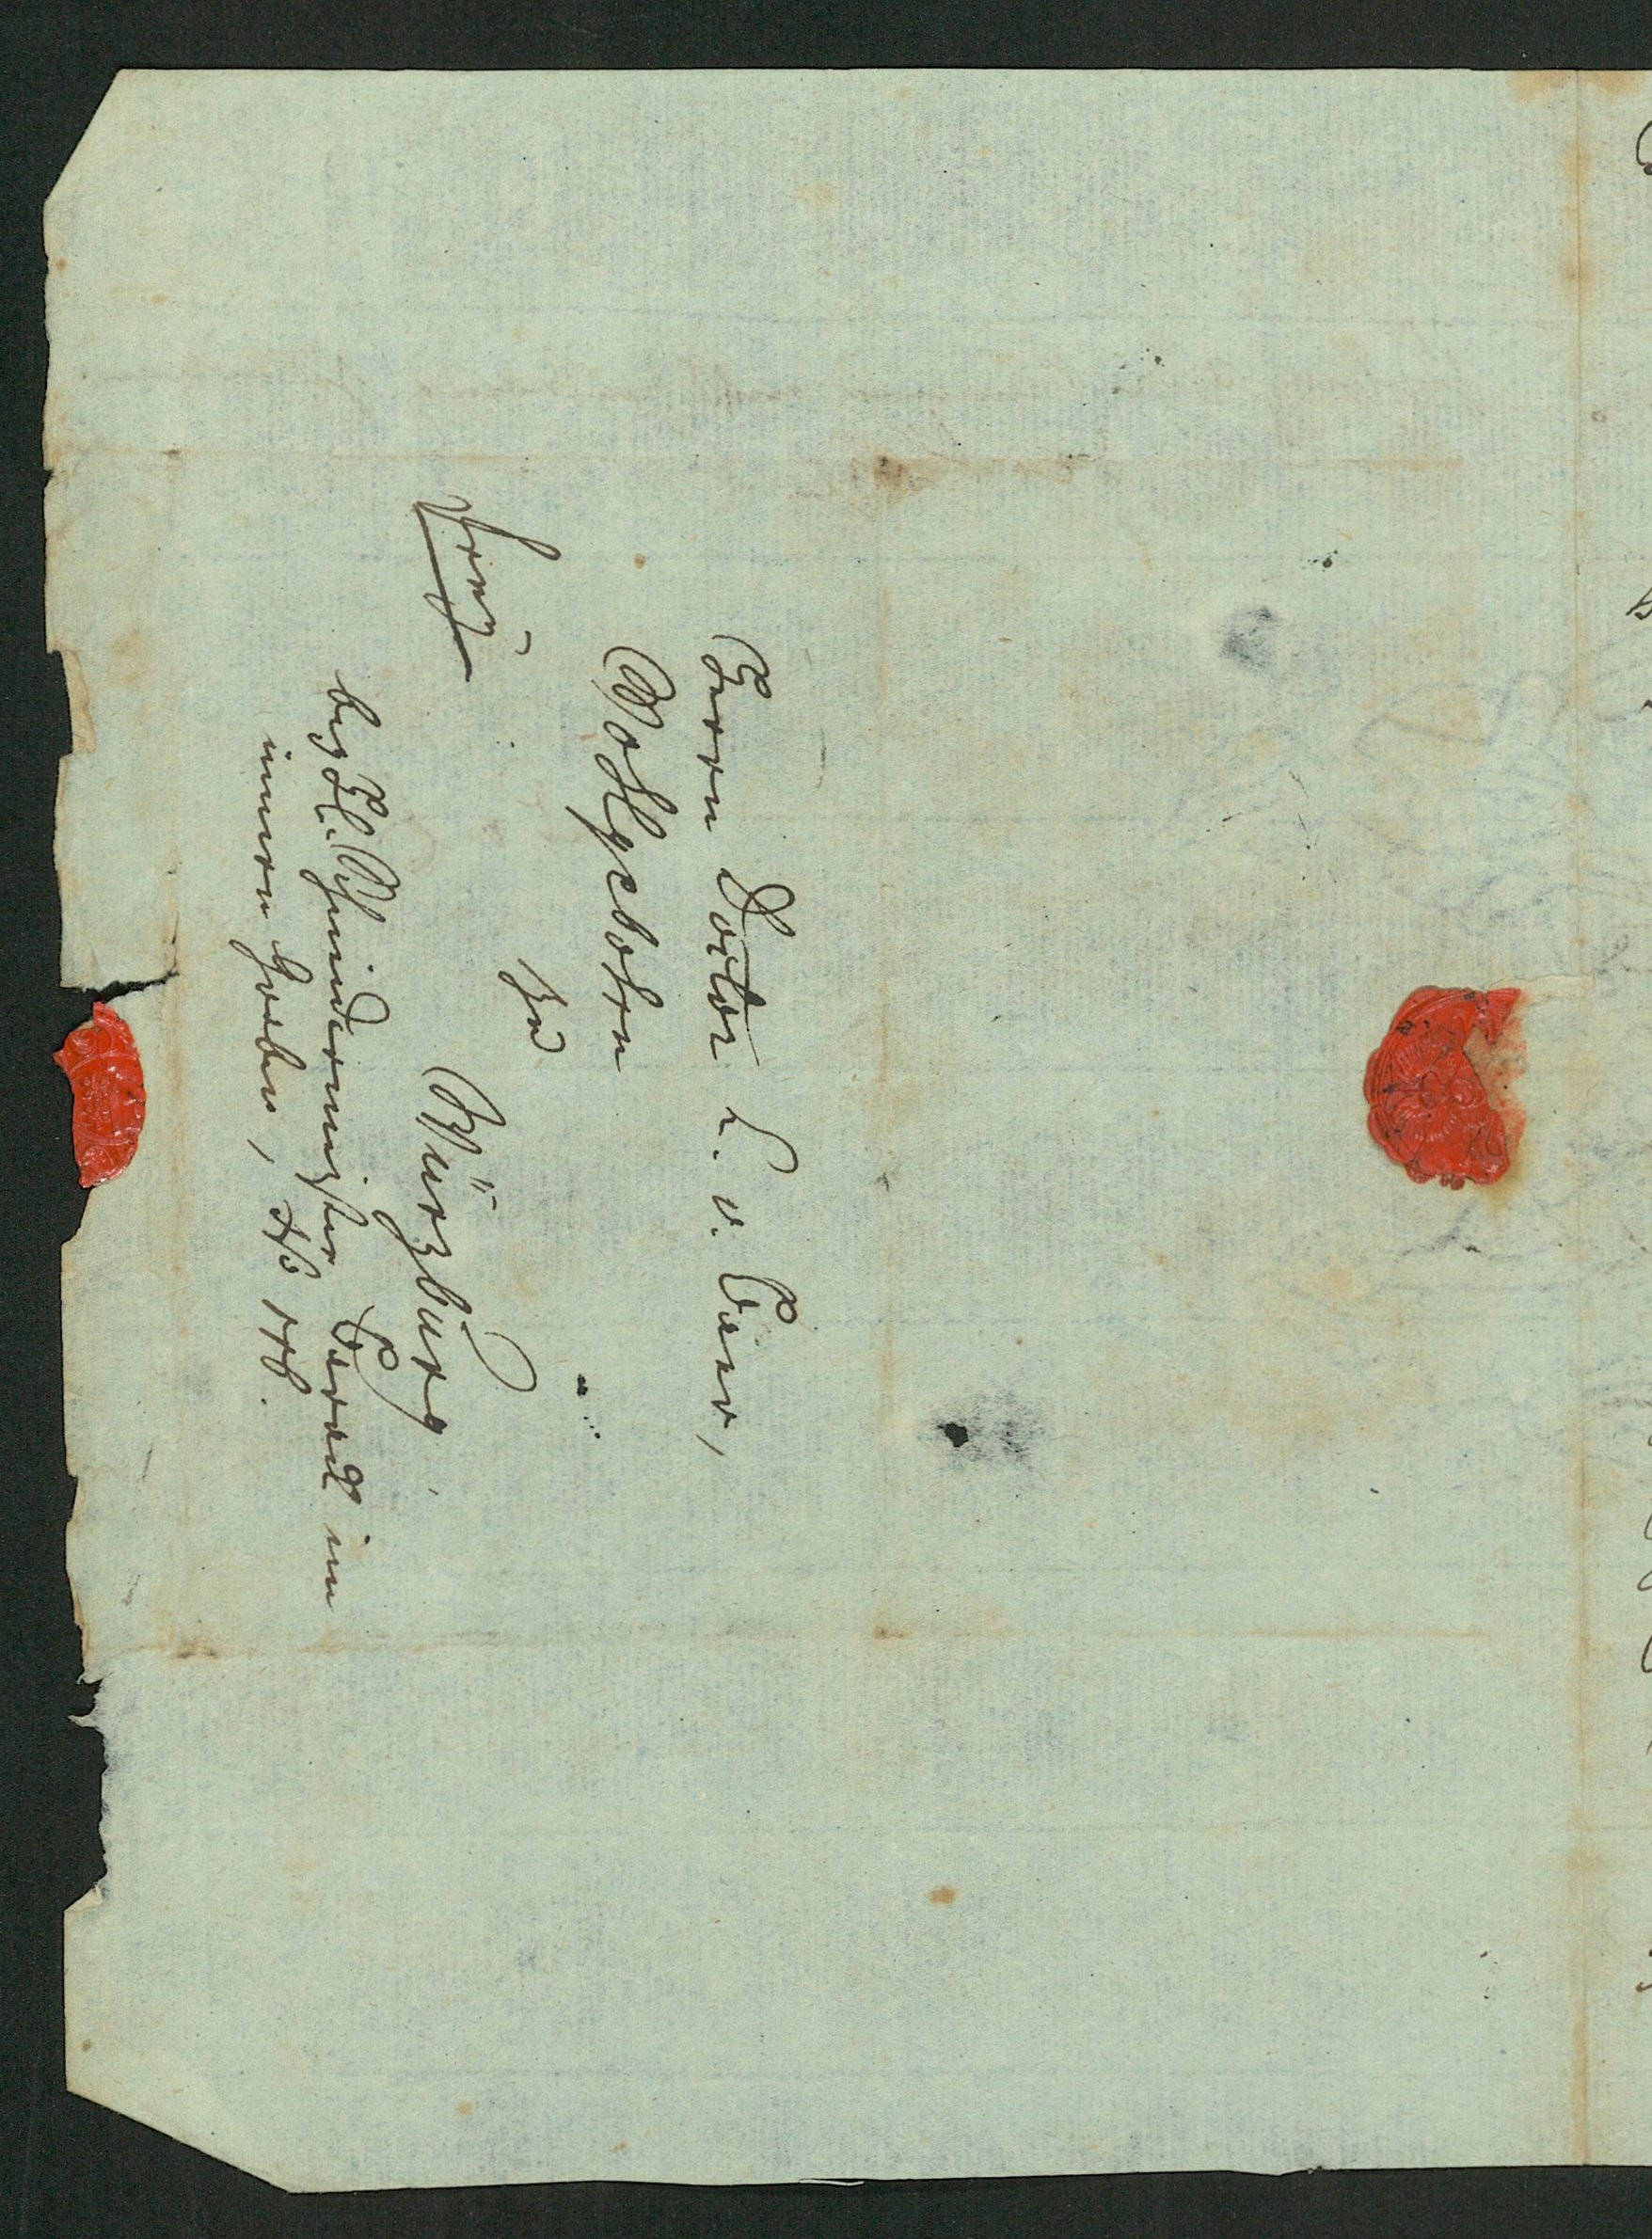 Herrn Doctor C. v. Baer,
Wohlgebohrn
zu
Würzburg.
frey
bey H. Schneidermeister Barall im
innern Graben, № 178.